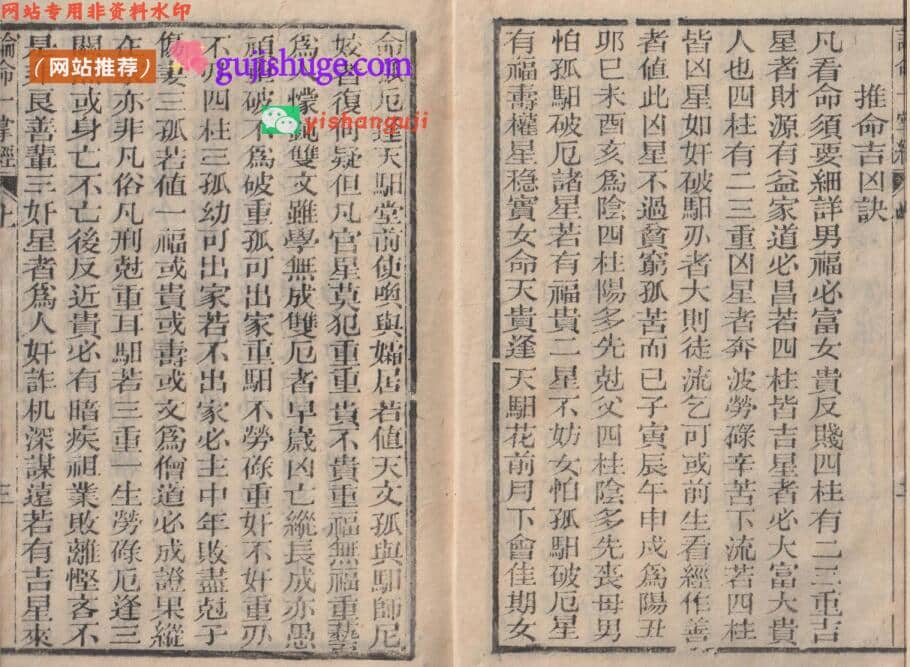 推命吉凶訣
凡看命須要細詳男福必富女貴反賤四柱有二三重吉
星者財源有益家道必昌若四柱皆吉星者必大富大貴
人也四柱有二三重凶星者奔波勞碌辛苦下流若四柱
皆凶星如奸破馹刃者大則徒流乞可或前生看經作善
者值此凶星不過貧窮孤苦而已子寅辰午申戍爲陽丑
夘巳未酉亥爲陰四柱陽多先尅父四柱陰多先喪母男
怕孤馹破厄諸星若有福貴二星不妨女怕孤馹破厄星
有福壽權星稳實女命天貴逢天馹花前月下會佳期女
命厄逢天馹堂前使喚與孀居若値天文孤與馹師尼
復何疑但凡官星莫犯重重貴不貴重福無福重藝
爲雙文雖學無成雙厄者早歲凶亡縱長成亦愚
頑破不爲破重孤可出家重馹不勞碌重奸不奸重刃
不刃四柱三孤幼可出家若不出家必主中年敗盡尅子
傷妻三孤若値一福或貴或壽或文爲僧道必成證果縱
在亦非凡俗凡刑尅重耳馹若三重一生勞碌厄逢三
或身亡不亡後反近貴必有暗疾祖業敗離慳吝不
是良善輩三奸星者爲人奸詐机深謀遠若有吉星來
論命一掌經
三
网站专用非资料水印
（网站推荐）
gujishuge.com
yishanguji